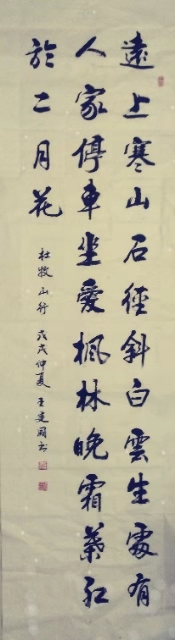 遠上寒山石徑斜白雲生處有
人家停車坐愛楓林晚霜葉紅
於二月花
杜牧山行 戊戌仲夏 王建國書